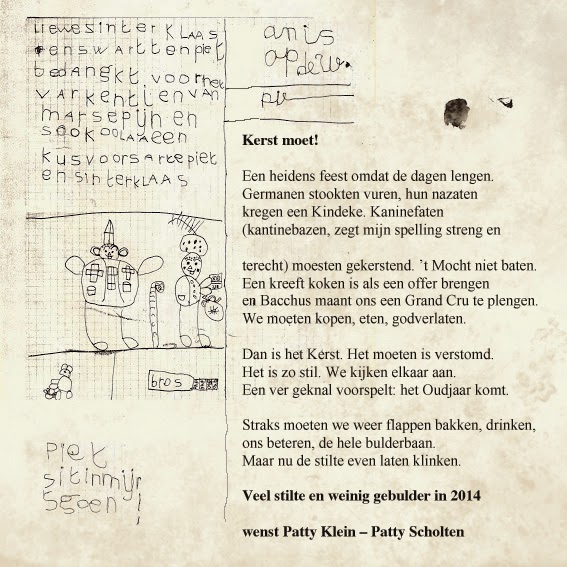 liewesinterklaas
enswarttenpiet
bedangkt voorhet
varkentienvan
marsepijn en
sookoolaaeen
kusvoorsartepiet
en sinterklaas
anis
opdew
pw
bros
piet
sitinmijn
sgoen!
Kerst moet!
Een heidens feest omdat de dagen lengen.
Germanen stookten vuren, hun nazaten
kregen een Kindeke. Kaninefaten
(kantinebazen, zegt mijn spelling streng en
terecht) moesten gekerstend. ’t Mocht niet baten.
Een kreeft koken is als een offer brengen
en Bacchus maant ons een Grand Cru te plengen.
We moeten kopen, eten, godverlaten.
Dan is het Kerst. Het moeten is verstomd.
Het is zo stil. We kijken elkaar aan.
Een ver geknal voorspelt: het Oudjaar komt.
Straks moeten we weer flappen bakken, drinken,
ons beteren, de hele bulderbaan.
Maar nu de stilte even laten klinken.
Veel stilte en weinig gebulder in 2014
wenst Patty Klein – Patty Scholten